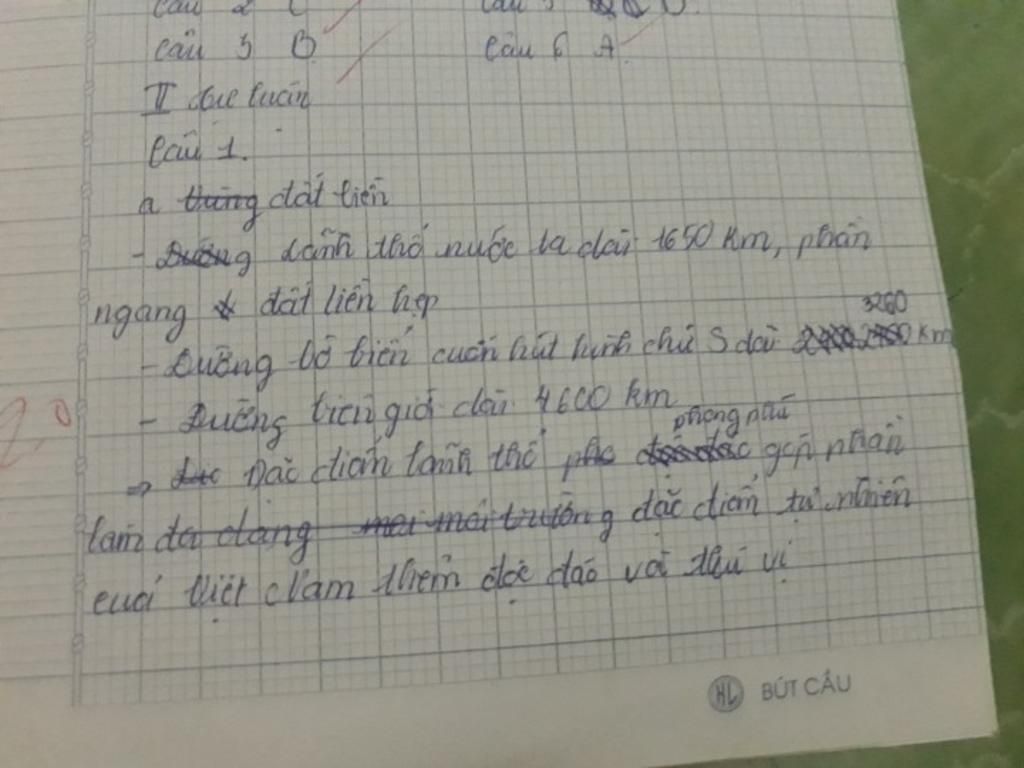 Câu 2 C
Câu 5 D.
Câu 3 B
Câu 6 A.
II tự luận
Câu 1.
a đất liền
- lãnh thổ nước ta dài 1650 km, phần
ngang đất liền hẹp
3260
- Đường bờ biển hình chữ S dài km
- Đường biên giới dài 4600 km
phong phú
=> Đặc điểm lãnh thổ góp phần
làm đặc điểm tự nhiên
của Việt Nam thêm độc đáo và thú vị
HL BÚT CẦU
2,0